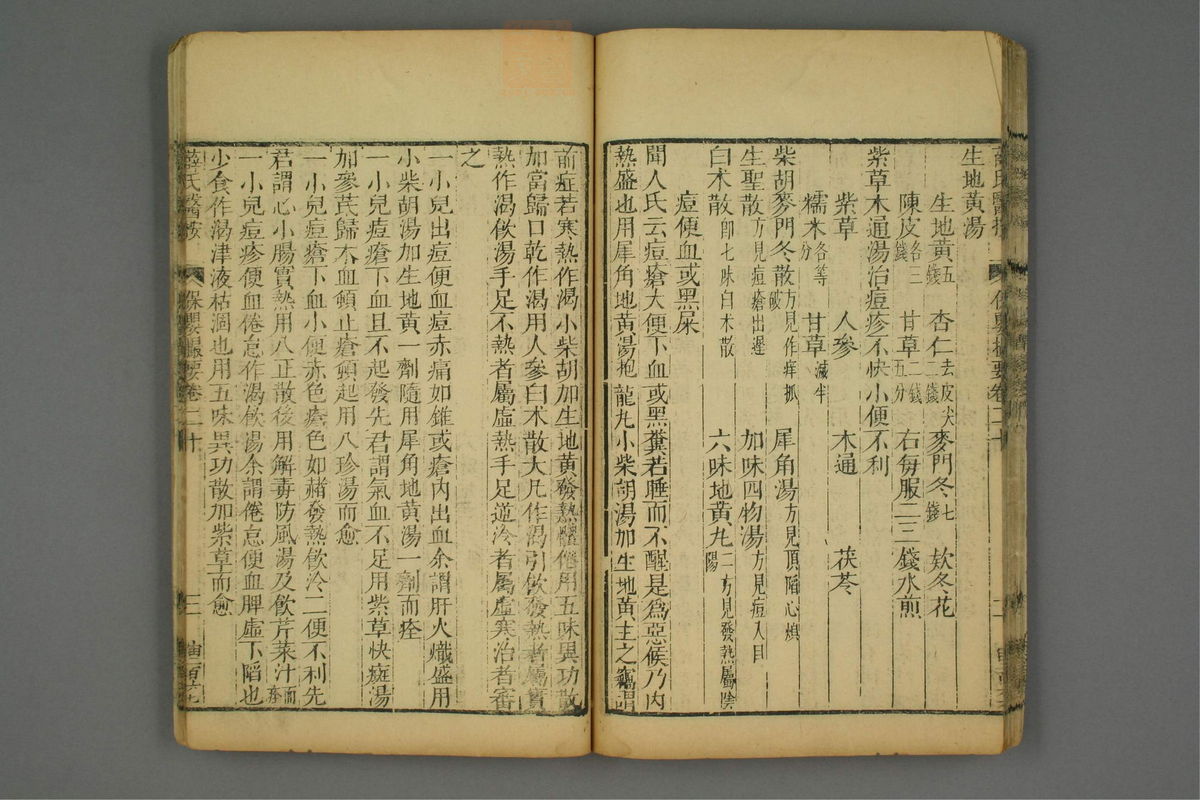 生地黃湯
生地黃五錢 杏仁去皮尖二錢 麥門冬七錢 欵冬花
陳皮各三錢 甘草二錢五分 右每服二三錢水煎
紫草木通湯治痘疹不快小便不利
紫草 人參 木通 茯苓
糯米各等分 甘草減半
柴胡麥門冬散方見作痒抓破 犀角湯方見頂陷心煩
生聖散方見痘瘡出遲 加味四物湯方見痘入目
白朮散即七味白朮散 六味地黃丸二方見發熱屬陰陽
痘便血或黑屎
聞人氏云痘瘡大便下血或黑糞若睡而不醒是爲惡候乃內
熱盛也用犀角地黃湯抱龍丸小柴胡湯加生地黃主之竊謂
前症若寒熱作渴小柴胡加生地黃發熱體倦用五味異功散
加當歸口乾作渴用人參白朮散大凡作渴引飲發熱者屬實
熱作渴飲湯手足不熱者屬虛熱手足逆冷者屬虛寒治者審
之
一小兒出痘便血痘赤痛如錐或瘡內出血余謂肝火熾盛用
小柴胡湯加生地黃一劑隨用犀角地黃湯一劑而痊
一小兒痘瘡下血且不起發先君謂氣血不足用紫草快癍湯
加參芪歸朮血頓止瘡頓起用八珍湯而愈
一小兒痘瘡下血小便赤色瘡色如赭發熱飲冷二便不利先
君謂心小腸實熱用八正散後用解毒防風湯及飲芹菜汁而痊
一小兒痘疹便血倦怠作渴飲湯余謂倦怠便血脾虛下陷也
少食作渴津液枯涸也用五味異功散加紫草而愈
薛氏醫按 保嬰撮要卷二十 三